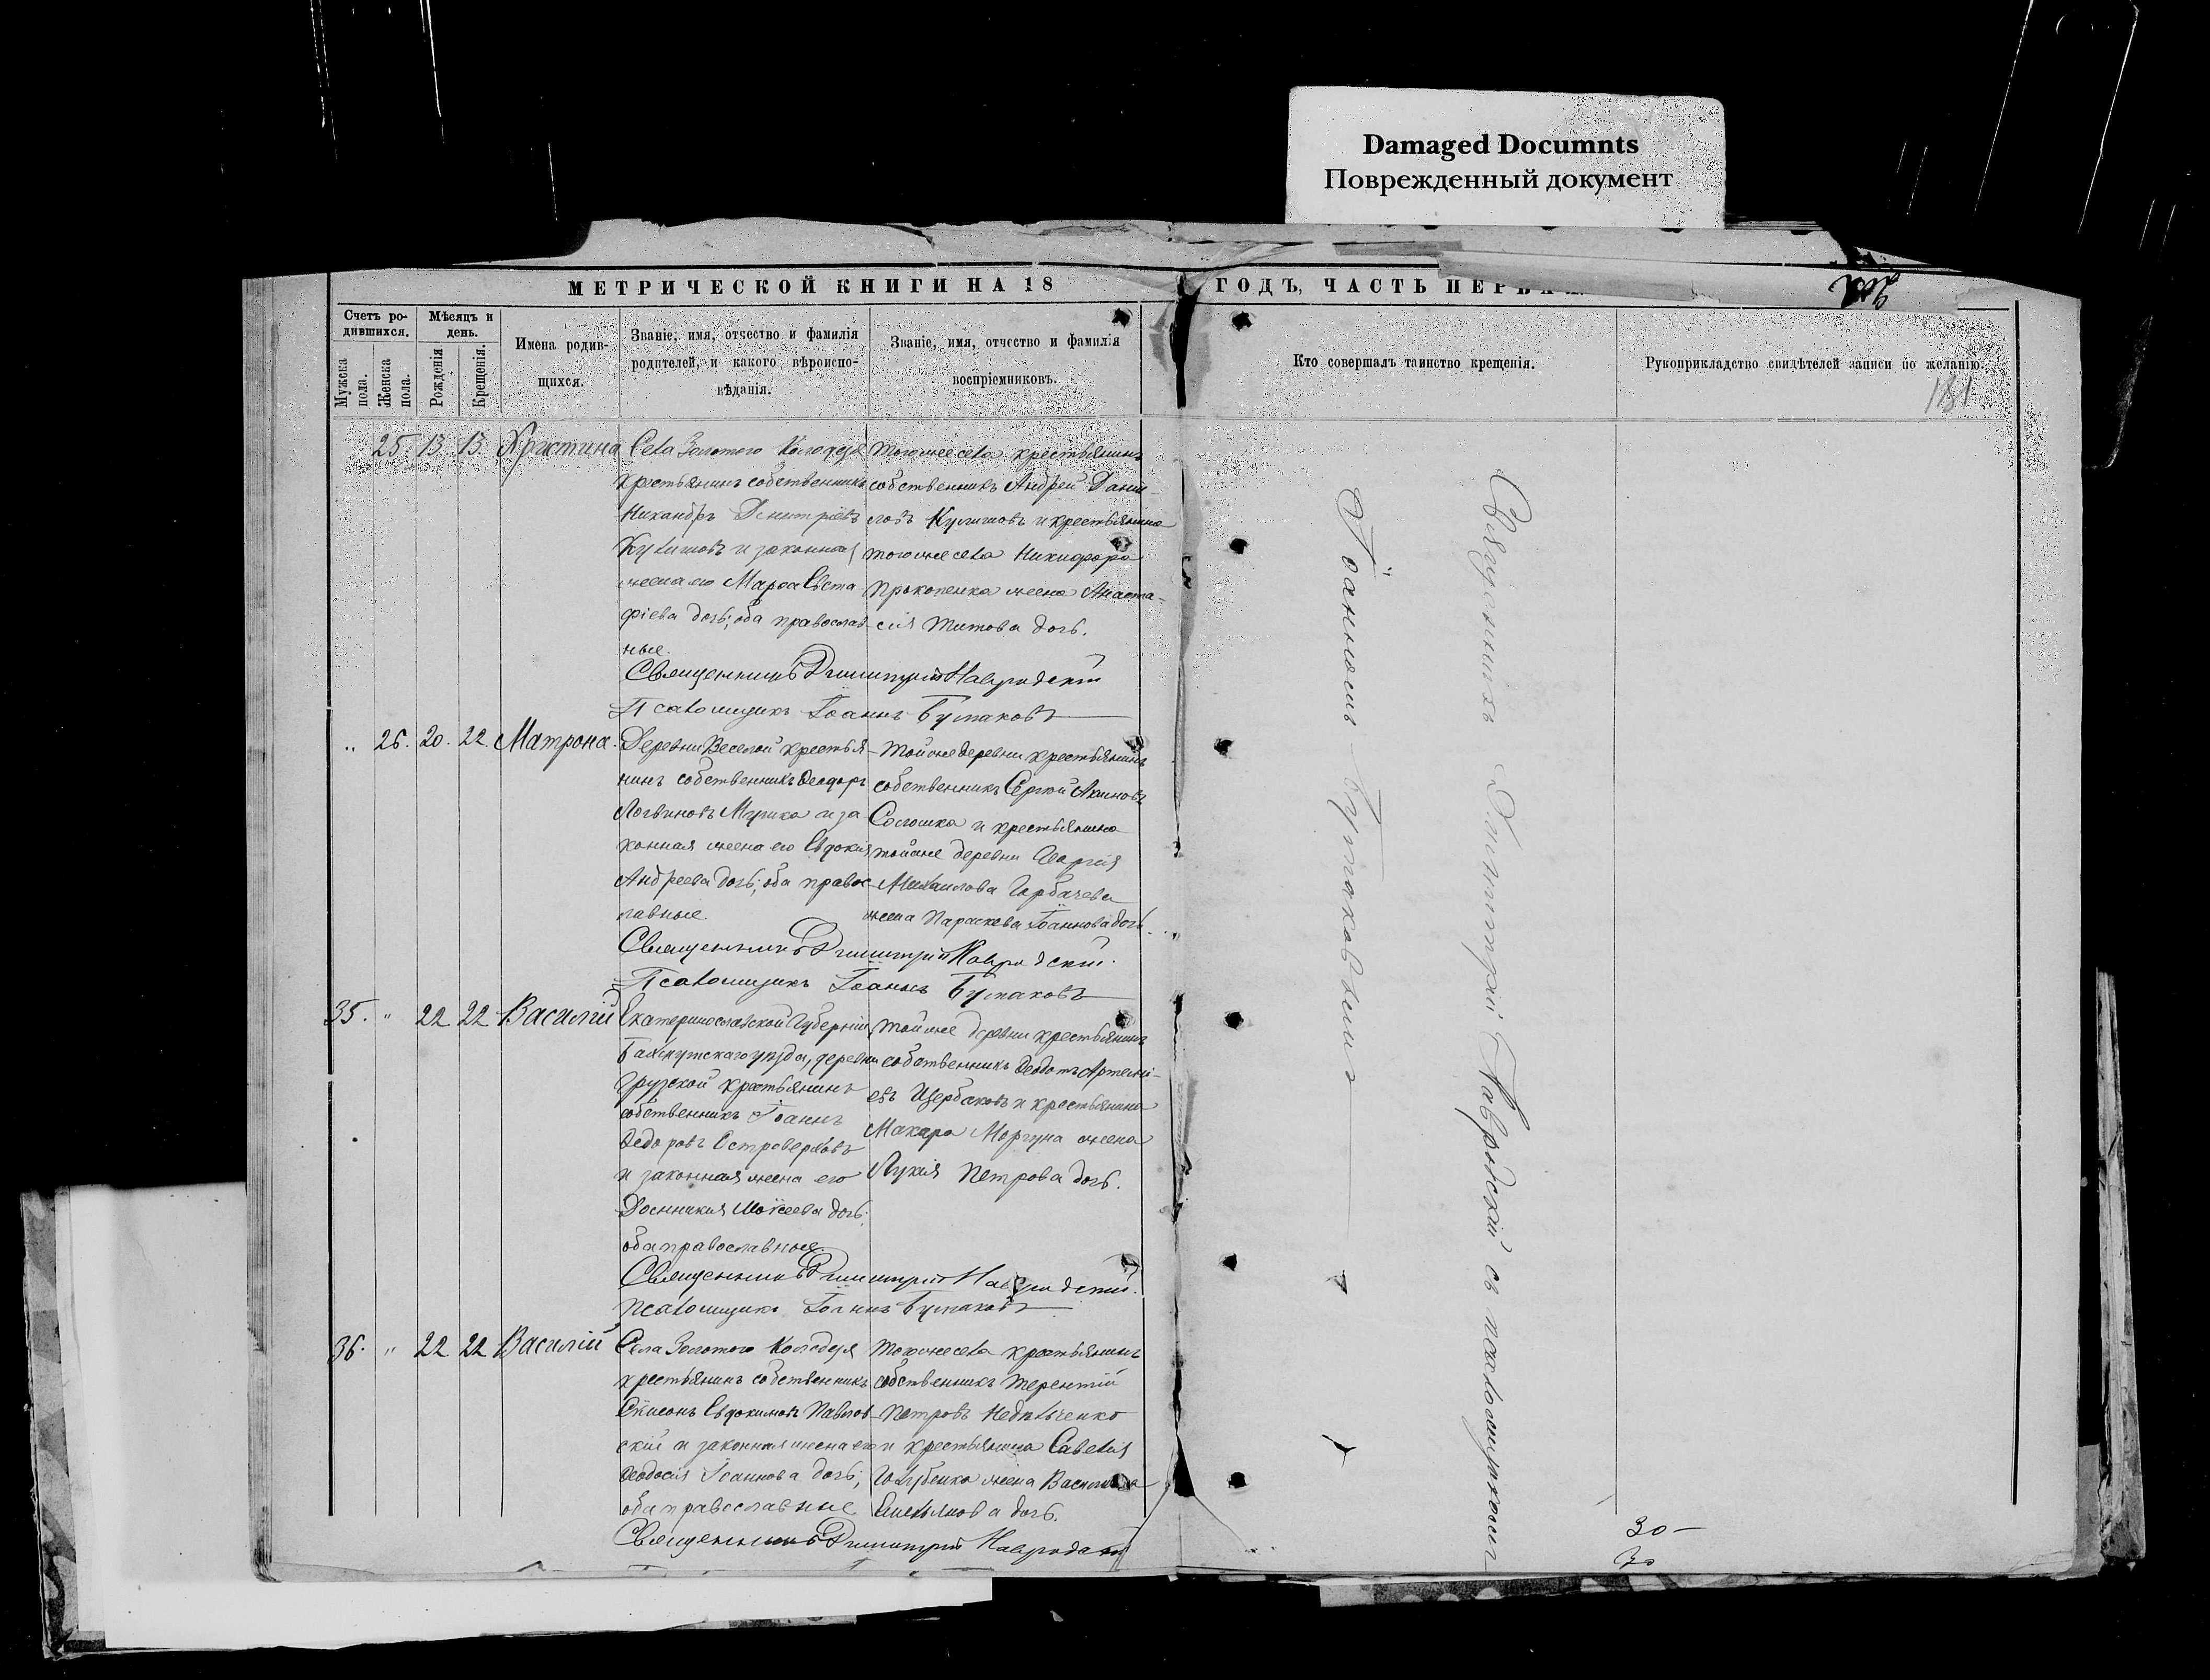 Damaged Documnts
Поврежденный документ
МЕТРИЧЕСКОЙ КНИГИ НА 18
ГОДЪ, ЧАСТЬ
Счетъ ро-
дившихся.
Мужска
пола.
Женска
пола.
Мѣсяцъ и
день.
Рожденія
Крещенія.
Имена родив-
щихся.
Званіе, имя, отчество и фамилія
родителей, и какого вѣроиспо-
вѣданія.
Званіе, имя, отчество и фамилія
воспріемниковъ.
Кто совершалъ таинство крещенія.
Рукоприкладство свидѣтелей записи по желанію.
181
25. 13. 13. Христина
Села Золотого Колодезя
крестьянинъ собственникъ
Никандръ Димитріевъ
Кулишовъ и законная
жена его Марѳа Евста-
фіева дочь; оба православ-
ные.
тогоже села крестьянинъ
собственникъ Андрей Даніи-
ловъ Кулишовъ и крестьянина
тогоже села Никифора
Прокопенка жена Анаста-
сія Титова дочь.
Священникъ Димитрій Навродскій
Псаломщикъ Іоаннъ Бутаковъ
" 26. 20. 22. Матрона.
Деревни Веселой крестья-
нинъ собственникъ Ѳеодоръ
Логвиновъ и за-
конная жена его Евдокія
Андреева дочь; оба правос-
лавные.
тойже деревни крестьянинъ
собственникъ Сергій
и крестьянина
тойже деревни Георгія
Михаилова Горбачева
жена Параскева Іоаннова дочь.
Священникъ Димитрій Навродскій.
Псаломщикъ Іоаннъ Бутаковъ
35. " 22 22 Василій
Екатеринославской Губерніи,
Бахмутскаго уѣзда, деревни
Грузской крестьянинъ
собственникъ Іоаннъ
Ѳедоровъ Островерховъ
и законная жена его
Моѵсеева дочь;
оба православные.
тойже деревни крестьянинъ
собственникъ Ѳеодотъ Артемі-
евъ Щербаковъ и крестьянина
Макара Моргуна жена
Лукія Петрова дочь.
Священникъ Димитрій Навродскій.
Псаломщикъ Іоаннъ Бутаковъ
36. " 22 22 Василій
Села Золотого Колодезя
крестьянинъ собственникъ
Евдокимовъ Павлов-
скій и законная жена его
Ѳеодосія Іоаннова дочь;
оба православные
тогоже села крестьянинъ
собственникъ Терентій
Петровъ Недѣльченко
и крестьянина Савелія
Голубенка жена Василиса
Емельянова дочь.
Священникъ Димитрій Навродскій
Священникъ Димитрій Навродскій съ псаломщикомъ
Іоанномъ Бутаковымъ
30 —